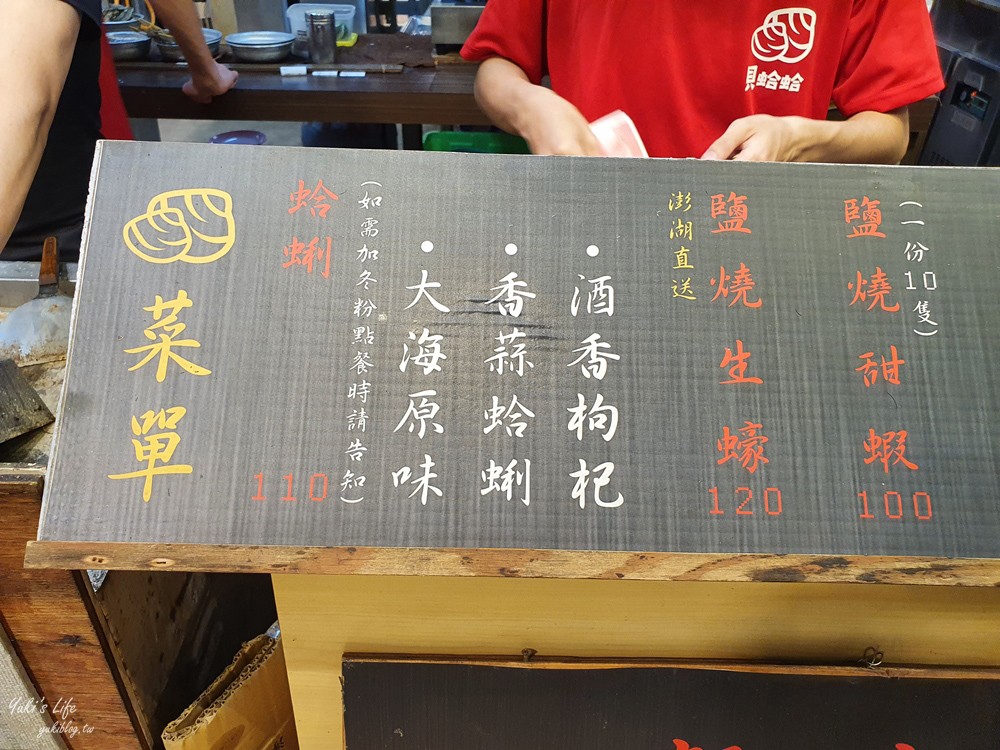 菜單
蛤蜊
110
(如需加冬粉點餐時請告知)
•大海原味
•香蒜蛤蜊
•酒香枸杞
澎湖直送
鹽燒生蠔
120
鹽燒甜蝦
100
(一份10隻)
蛤蛤
Yuki's Life
yukiblog.tw